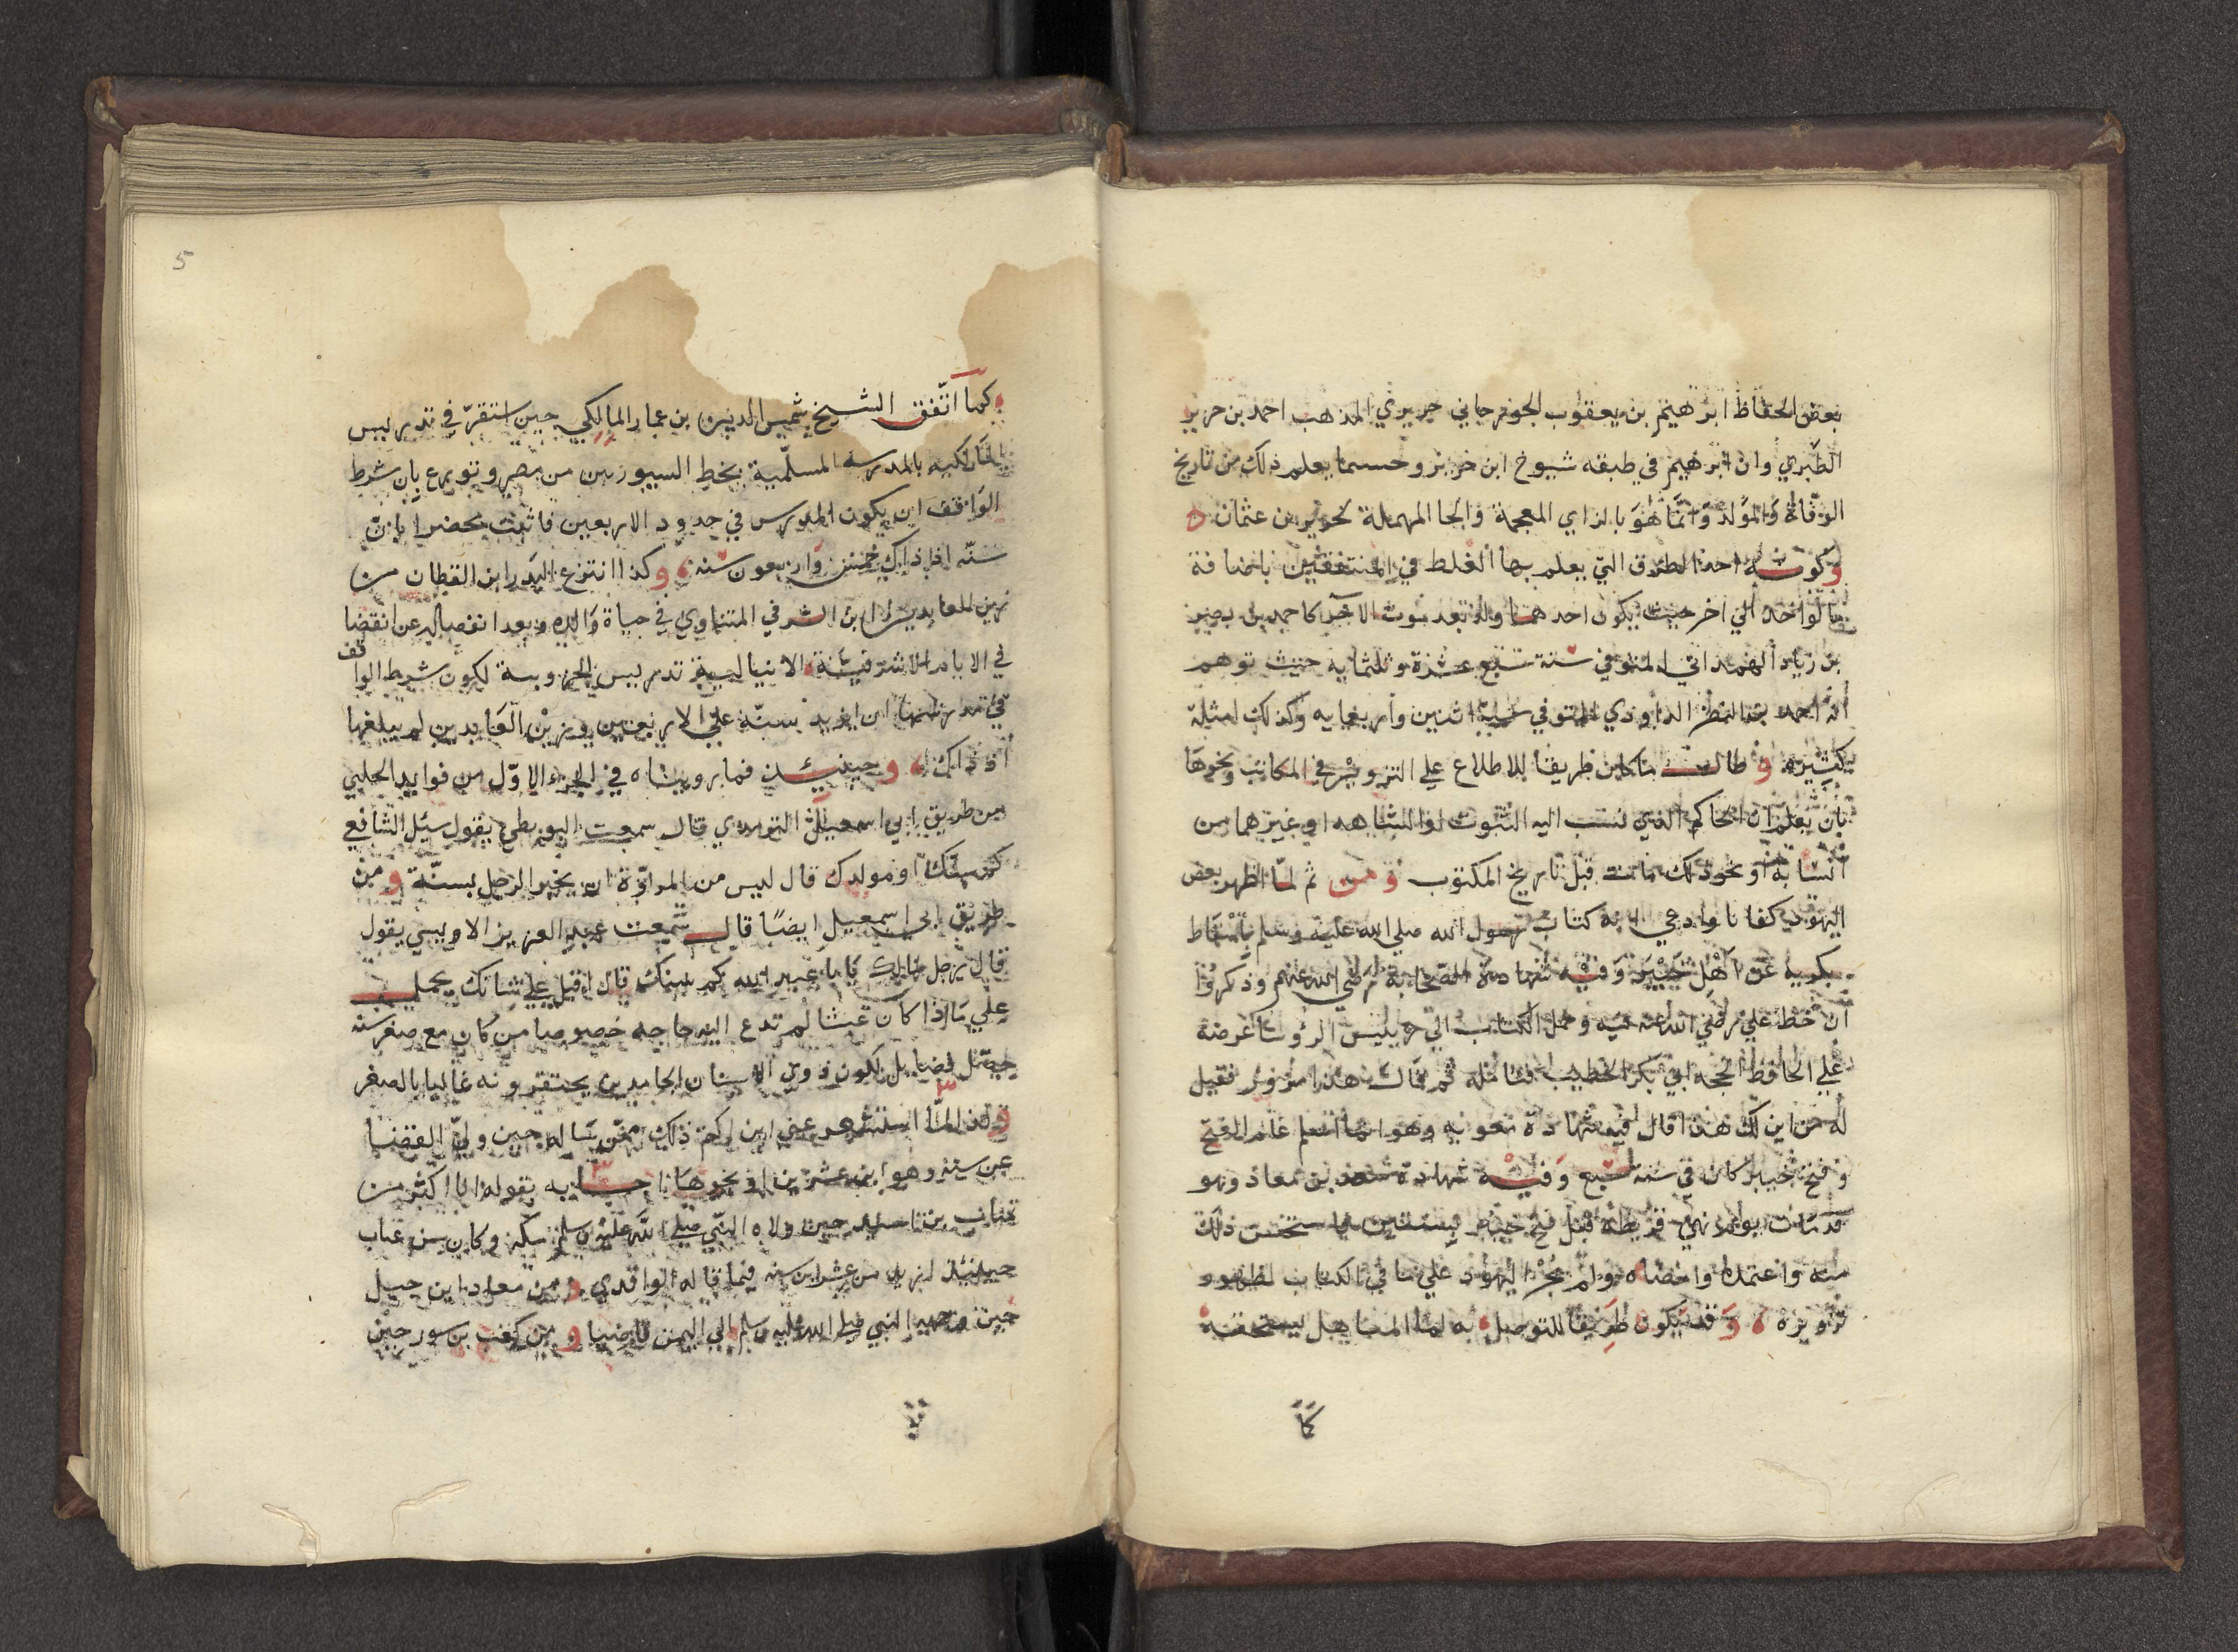 بعض الحفاظ ابرهيم بن يعقوب الجوزجاني جريري المذهب احمد بن جرير
الطبري وان ابرهيم في طبقه شيوخ ابن جرير وحسما يعلم ذلك من تاريخ
الوفاة والمولد وانما هو بالزاي المعجمة والحا المهملة لحريز بن عثمان ه
وكونه احد الطرق التي يعلم بها الغلط في المتفقين باضافة
ما لواحد الي اخر حيث يكون احدهما ولد بعد موت الاخر كاحمد بن بصير
بن زياد الهمداني المتوفي سنة سبع عشرة وثلثمايه حيث توهم
انه احمد بن النصر الداودي المتوفي سنة اثنين واربعمايه وكذلك امثلة
كثيرة و طالما كان طريقا للاطلاع علي التزوير في المكاتيب ونحوها
بان يعلم ان الحاكم الذي نسب اليه الثبوت او الشاهد او غيرهما من
انسابه او نحو ذلك مات قبل تاريخ المكتوب ومن ثم لما اظهر بعض
اليهود كتابا وادعي انه كتاب رسول الله صلي الله عليه وسلم باسقاط
الجزية عن اهل خيبر وفيه شهادة الصحابة رضي الله عنهم وذكروا
ان خط علي رضي الله عنه فيه وحمل الكتاب الي رييس الرؤسا عرضه
علي الحافظ الحجه ابي بكر الخطيب فتامله ثم قال هذا مزور فقيل
له من اين لك هذا قال فيه شهادة معويه وهو انما اسلم عام الفتح
وفتح خيبر كان في سنة سبع وفيه شهادة سعد بن معاذ وهو
قد مات يوم بني قريظه قبل فتح خيبر بسنتين فاستحسن ذلك
منه واعتمده وامضاه ولم يجز اليهود علي ما في الكتاب لظهور
تزويره ه وقد يكون طريقا للتوصل به لما المتاهل يستحقه
كما
كما اتفق الشيخ شمس الدين بن عمار المالكي حين استقر في تدريس
المالكيه بالمدرسه المسلمية بخط السيوريين من مصر ونوزع بان شرط
الواقف ان يكون المدرس في حدود الاربعين فاثبت محضرا بان
سنه اذ ذاك خمس واربعون سنه ه وكذا انتزع البدر ابن القطان من
زين العابدين ابن الشرفي المناوي في حياة والده وبعد انفصاله عن القضا
في الايام الاشرفية الاينالية تدريس الخروبية لكون شرط الواقف
في مدرسها ان يزيد سنه علي الاربعين وزين العابدين لم يبلغها
اذ ذاك ه وحينئذ فما رويناه في الجزء الاول من فوايد الحلبي
من طريق ابي اسمعيل الترمذي قال سمعت البويطي يقول سئل الشافعي
كم سنك او مولدك قال ليس من المروة ان يخبر الرجل بسنه و من
طريق ابي اسمعيل ايضا قال سمعت عبد العزيز الاويسي يقول
قال رجل لمالك يا با عبد الله كم سنك قال اقبل علي شانك يحمل
علي ما اذا كان عبثا لم تدع اليه حاجه خصوصا من كان مع صغر سنه
حصل فضايل لكون ذوي الاسنان الجامدين يحتقرونه غاليا بالصغر
ولهذا لما استشعر يحيي ابن اكثم ذلك ممن ساله حين ولي القضا
عن سنه وهو ابن عشرين او نحوها اجابه بقوله انا اكبر من
عتاب بن اسيد حين ولاه النبي صلي الله عليه وسلم مكة وكان سن عتاب
حينئذ ازيد من عشرين سنه فيما قاله الواقدي و من معاذ ابن جبل
حين وجهه النبي صلي الله عليه وسلم الي اليمن قاضيا و من كعب بن سور حين